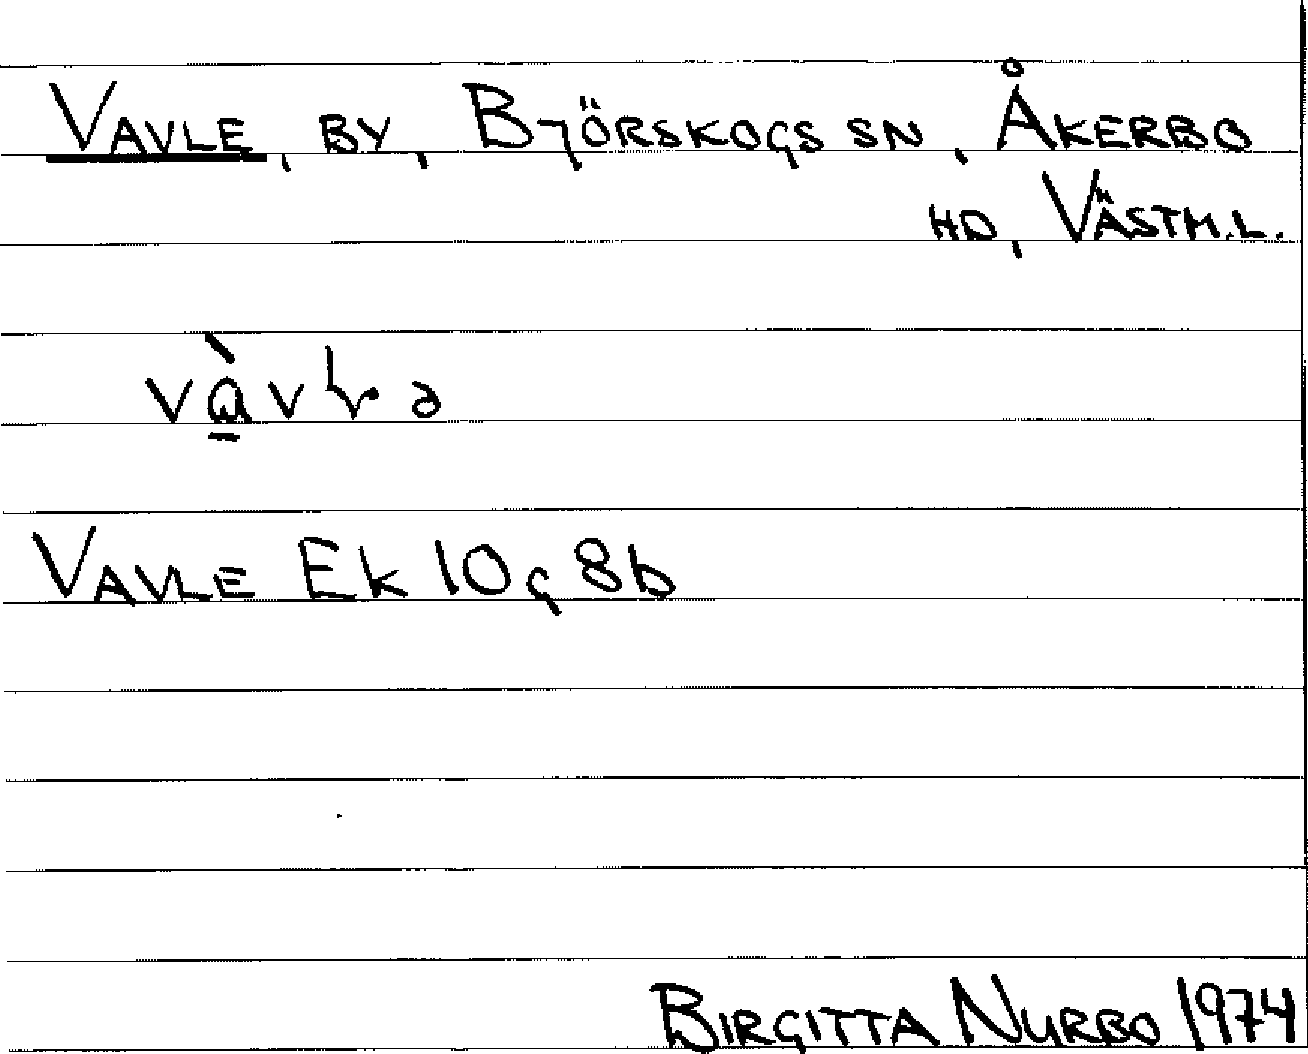 VAVLE, BY, BJÖRSKOGS SN, ÅKERBO
HD, VÄSTM.L.
VAVLE EK 10g 8b
BIRGITTA NURBO 1974